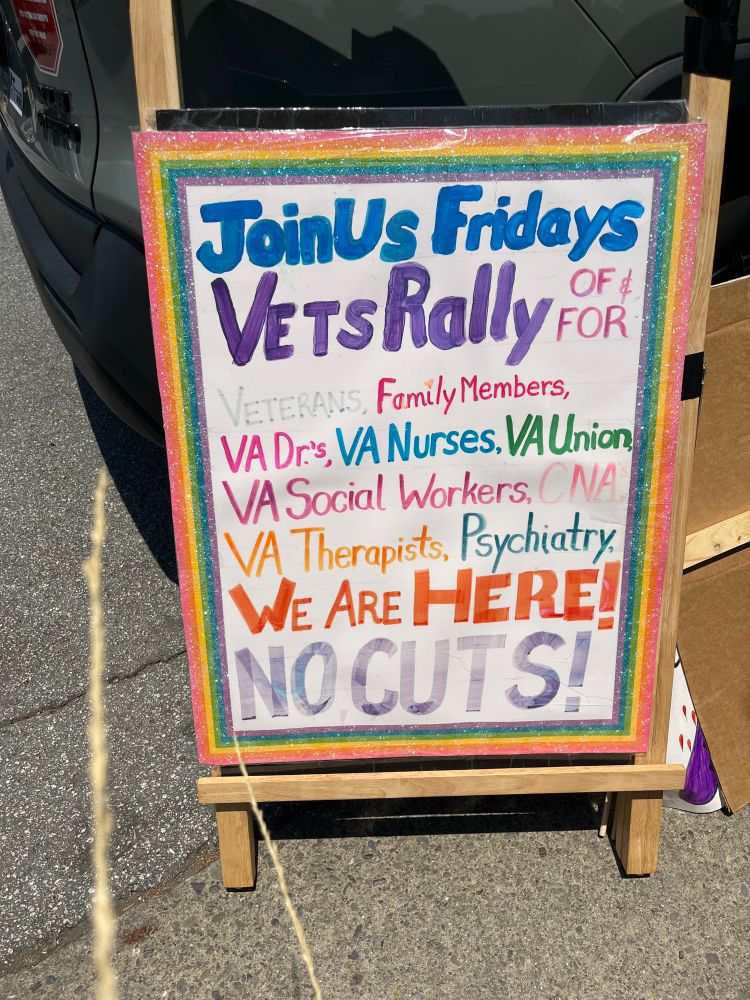 Join Us Fridays
Vets Rally OF &
FOR
Veterans, Family Members,
VA Dr.'s, VA Nurses, VA Union,
VA Social Workers, CNA's,
VA Therapists, Psychiatry,
We Are HERE!
NO CUTS!